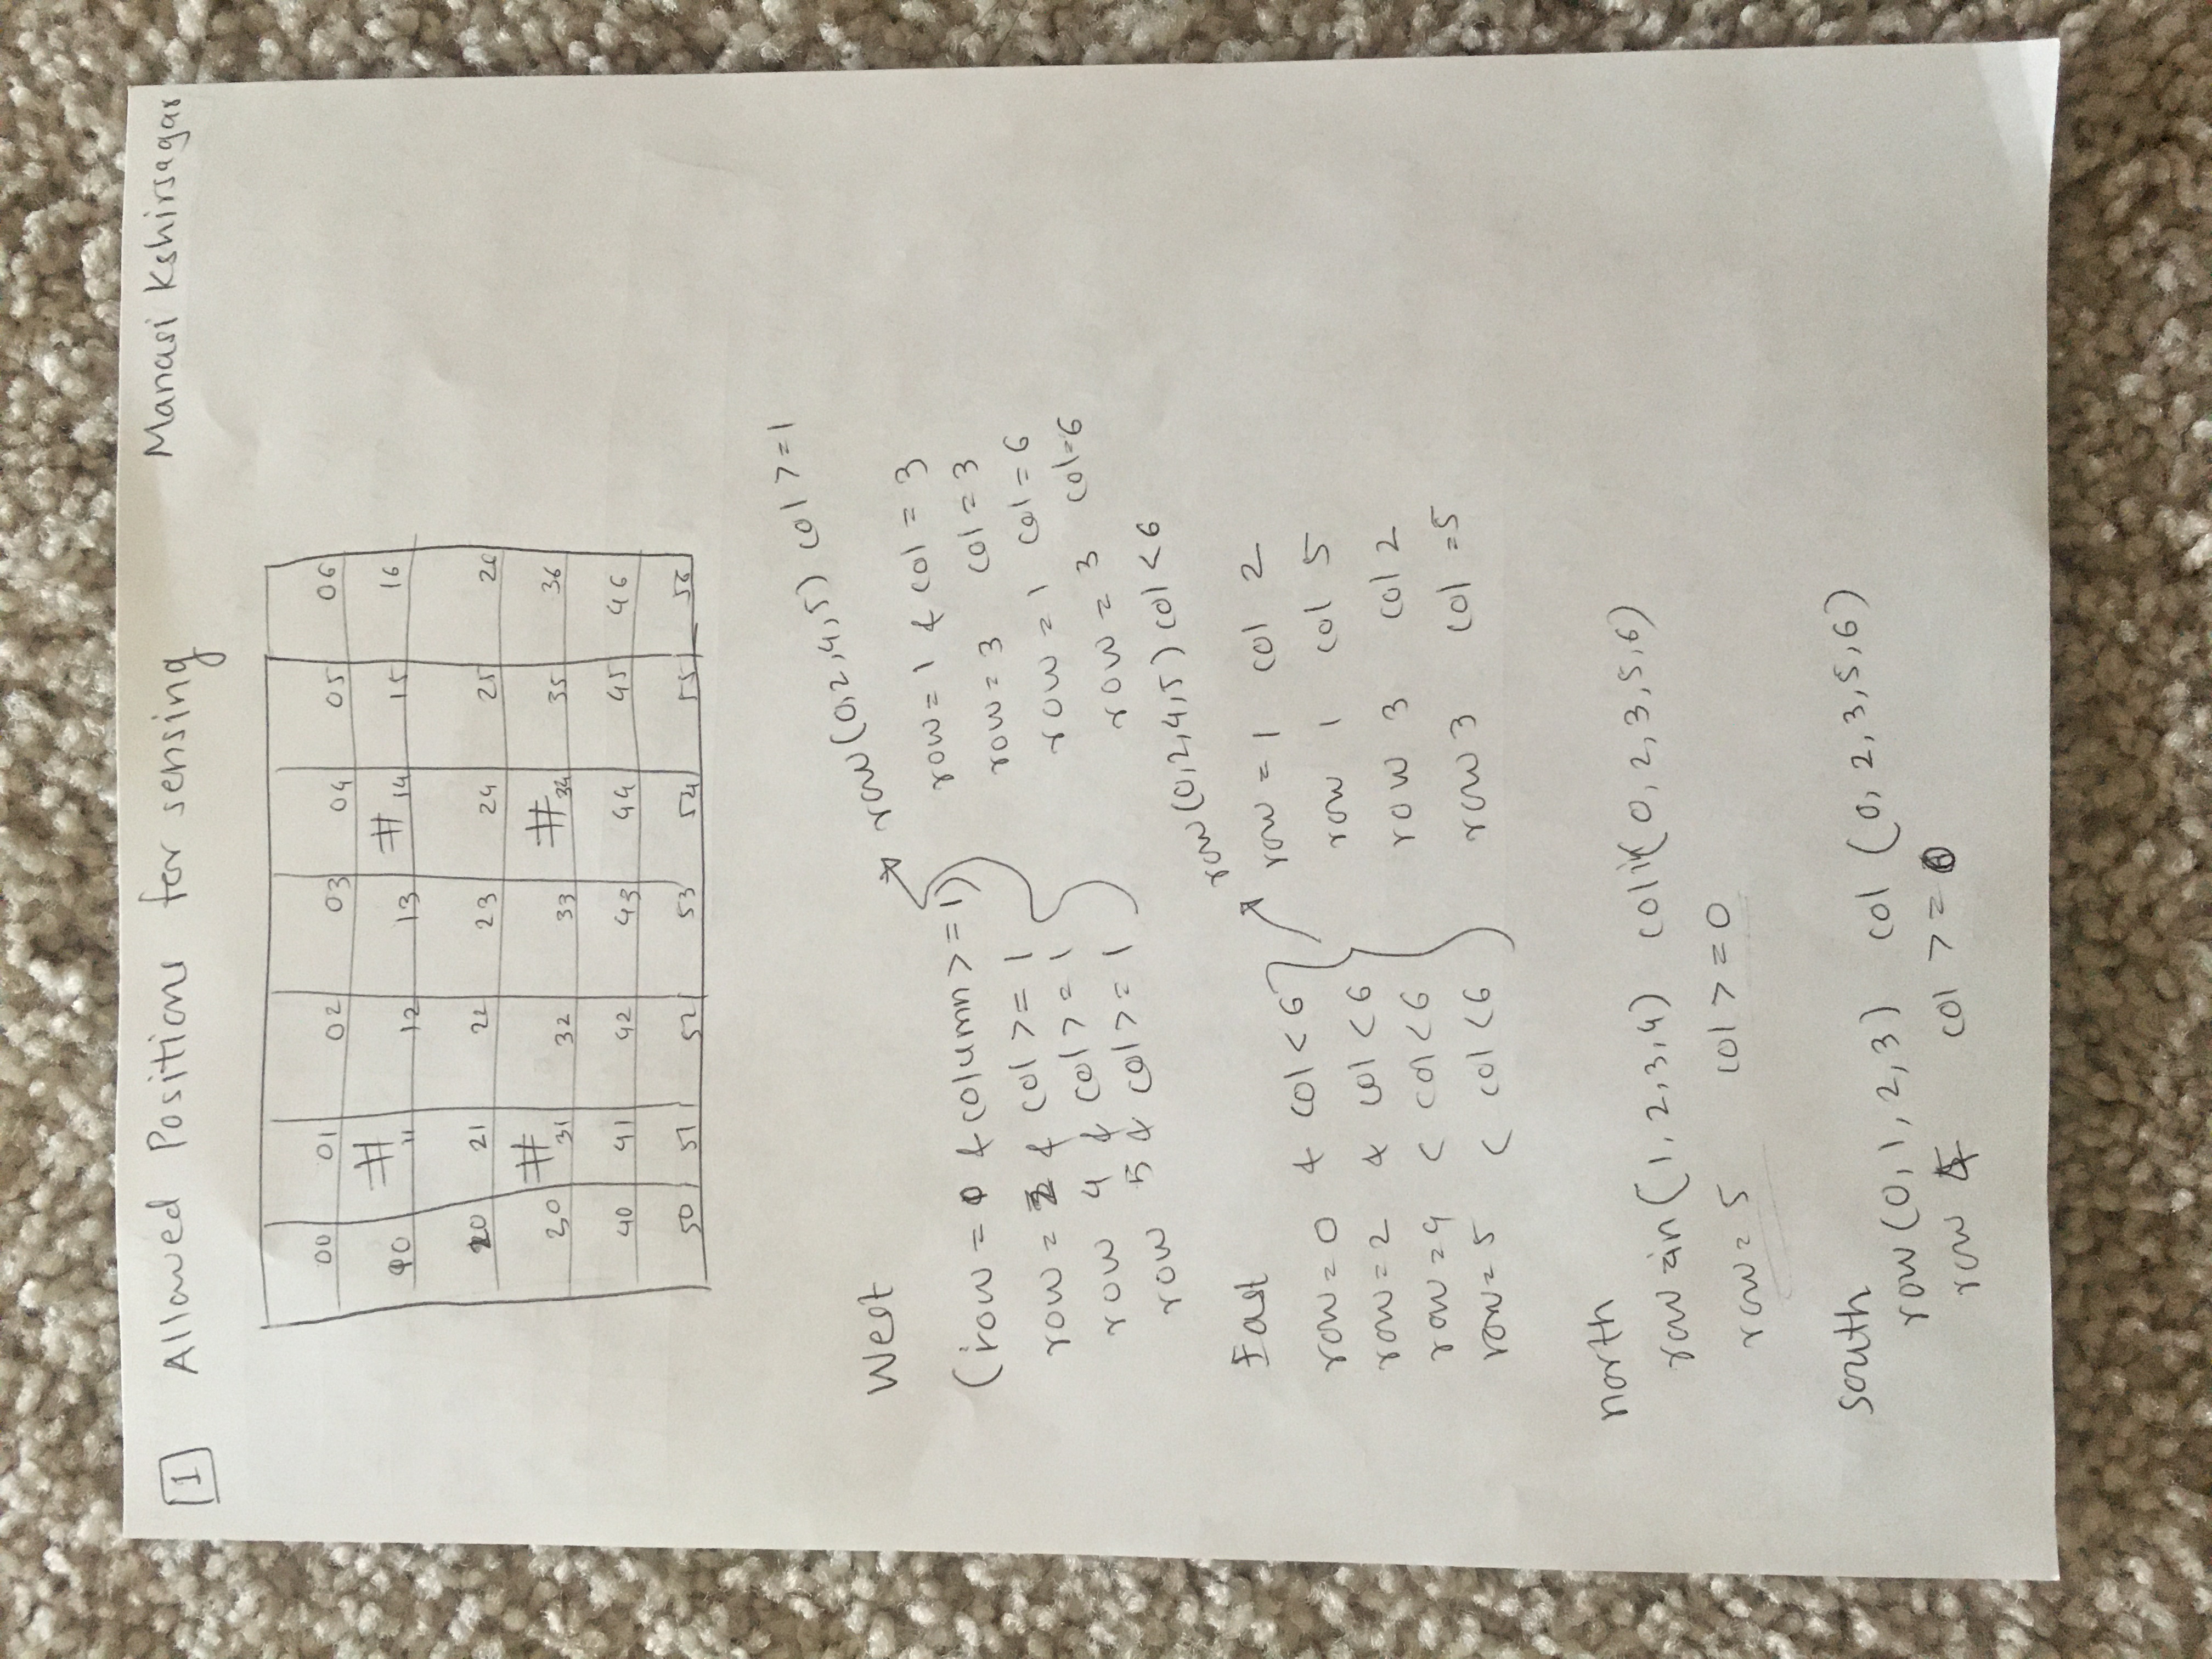 1 Allowed Positions for sensing Manasi Kshirsagar
00 01 02 03 04 05 06
10 # 11 12 13 # 14 15 16
20 21 22 23 24 25 26
30 # 31 32 33 # 34 35 36
40 41 42 43 44 45 46
50 51 52 53 54 55 56
West
(row = 0 & column >= 1)
row = 2 & col >= 1
row 4 & col >= 1
row 5 & col >= 1
row (0,2,4,5) col >= 1
row = 1 & col = 3
row = 3 col = 3
row = 1 col = 6
row = 3 col = 6
East
row = 0 & col < 6
row = 2 & col < 6
row = 4 & col < 6
row = 5 & col < 6
row (0,2,4,5) col < 6
row = 1 col 2
row 1 col 5
row 3 col 2
row 3 col = 5
north
row in (1, 2, 3, 4) col in (0, 2, 3, 5, 6)
row = 5 col >= 0
south
row (0, 1, 2, 3) col (0, 2, 3, 5, 6)
row 4 col >= 0